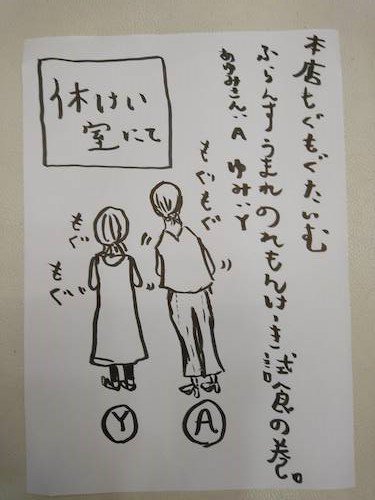 本店もぐもぐたいむ
ふらんすうまれのれもんけーき試食の巻。
あゆみさん:A ゆみ:Y
休けい
室にて
もぐもぐ
もぐ
もぐ
A
Y